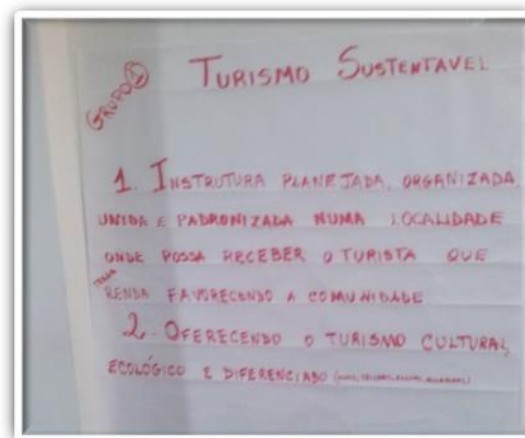 GRUPO 1
TURISMO SUSTENTAVEL
1. INSTRUTURA PLANEJADA, ORGANIZADA,
UNIDA E PADRONIZADA NUMA LOCALIDADE
ONDE POSSA RECEBER O TURISTA QUE
RENDA FAVORECENDO A COMUNIDADE
2. OFERECENDO O TURISMO CULTURAL,
ECOLÓGICO E DIFERENCIADO